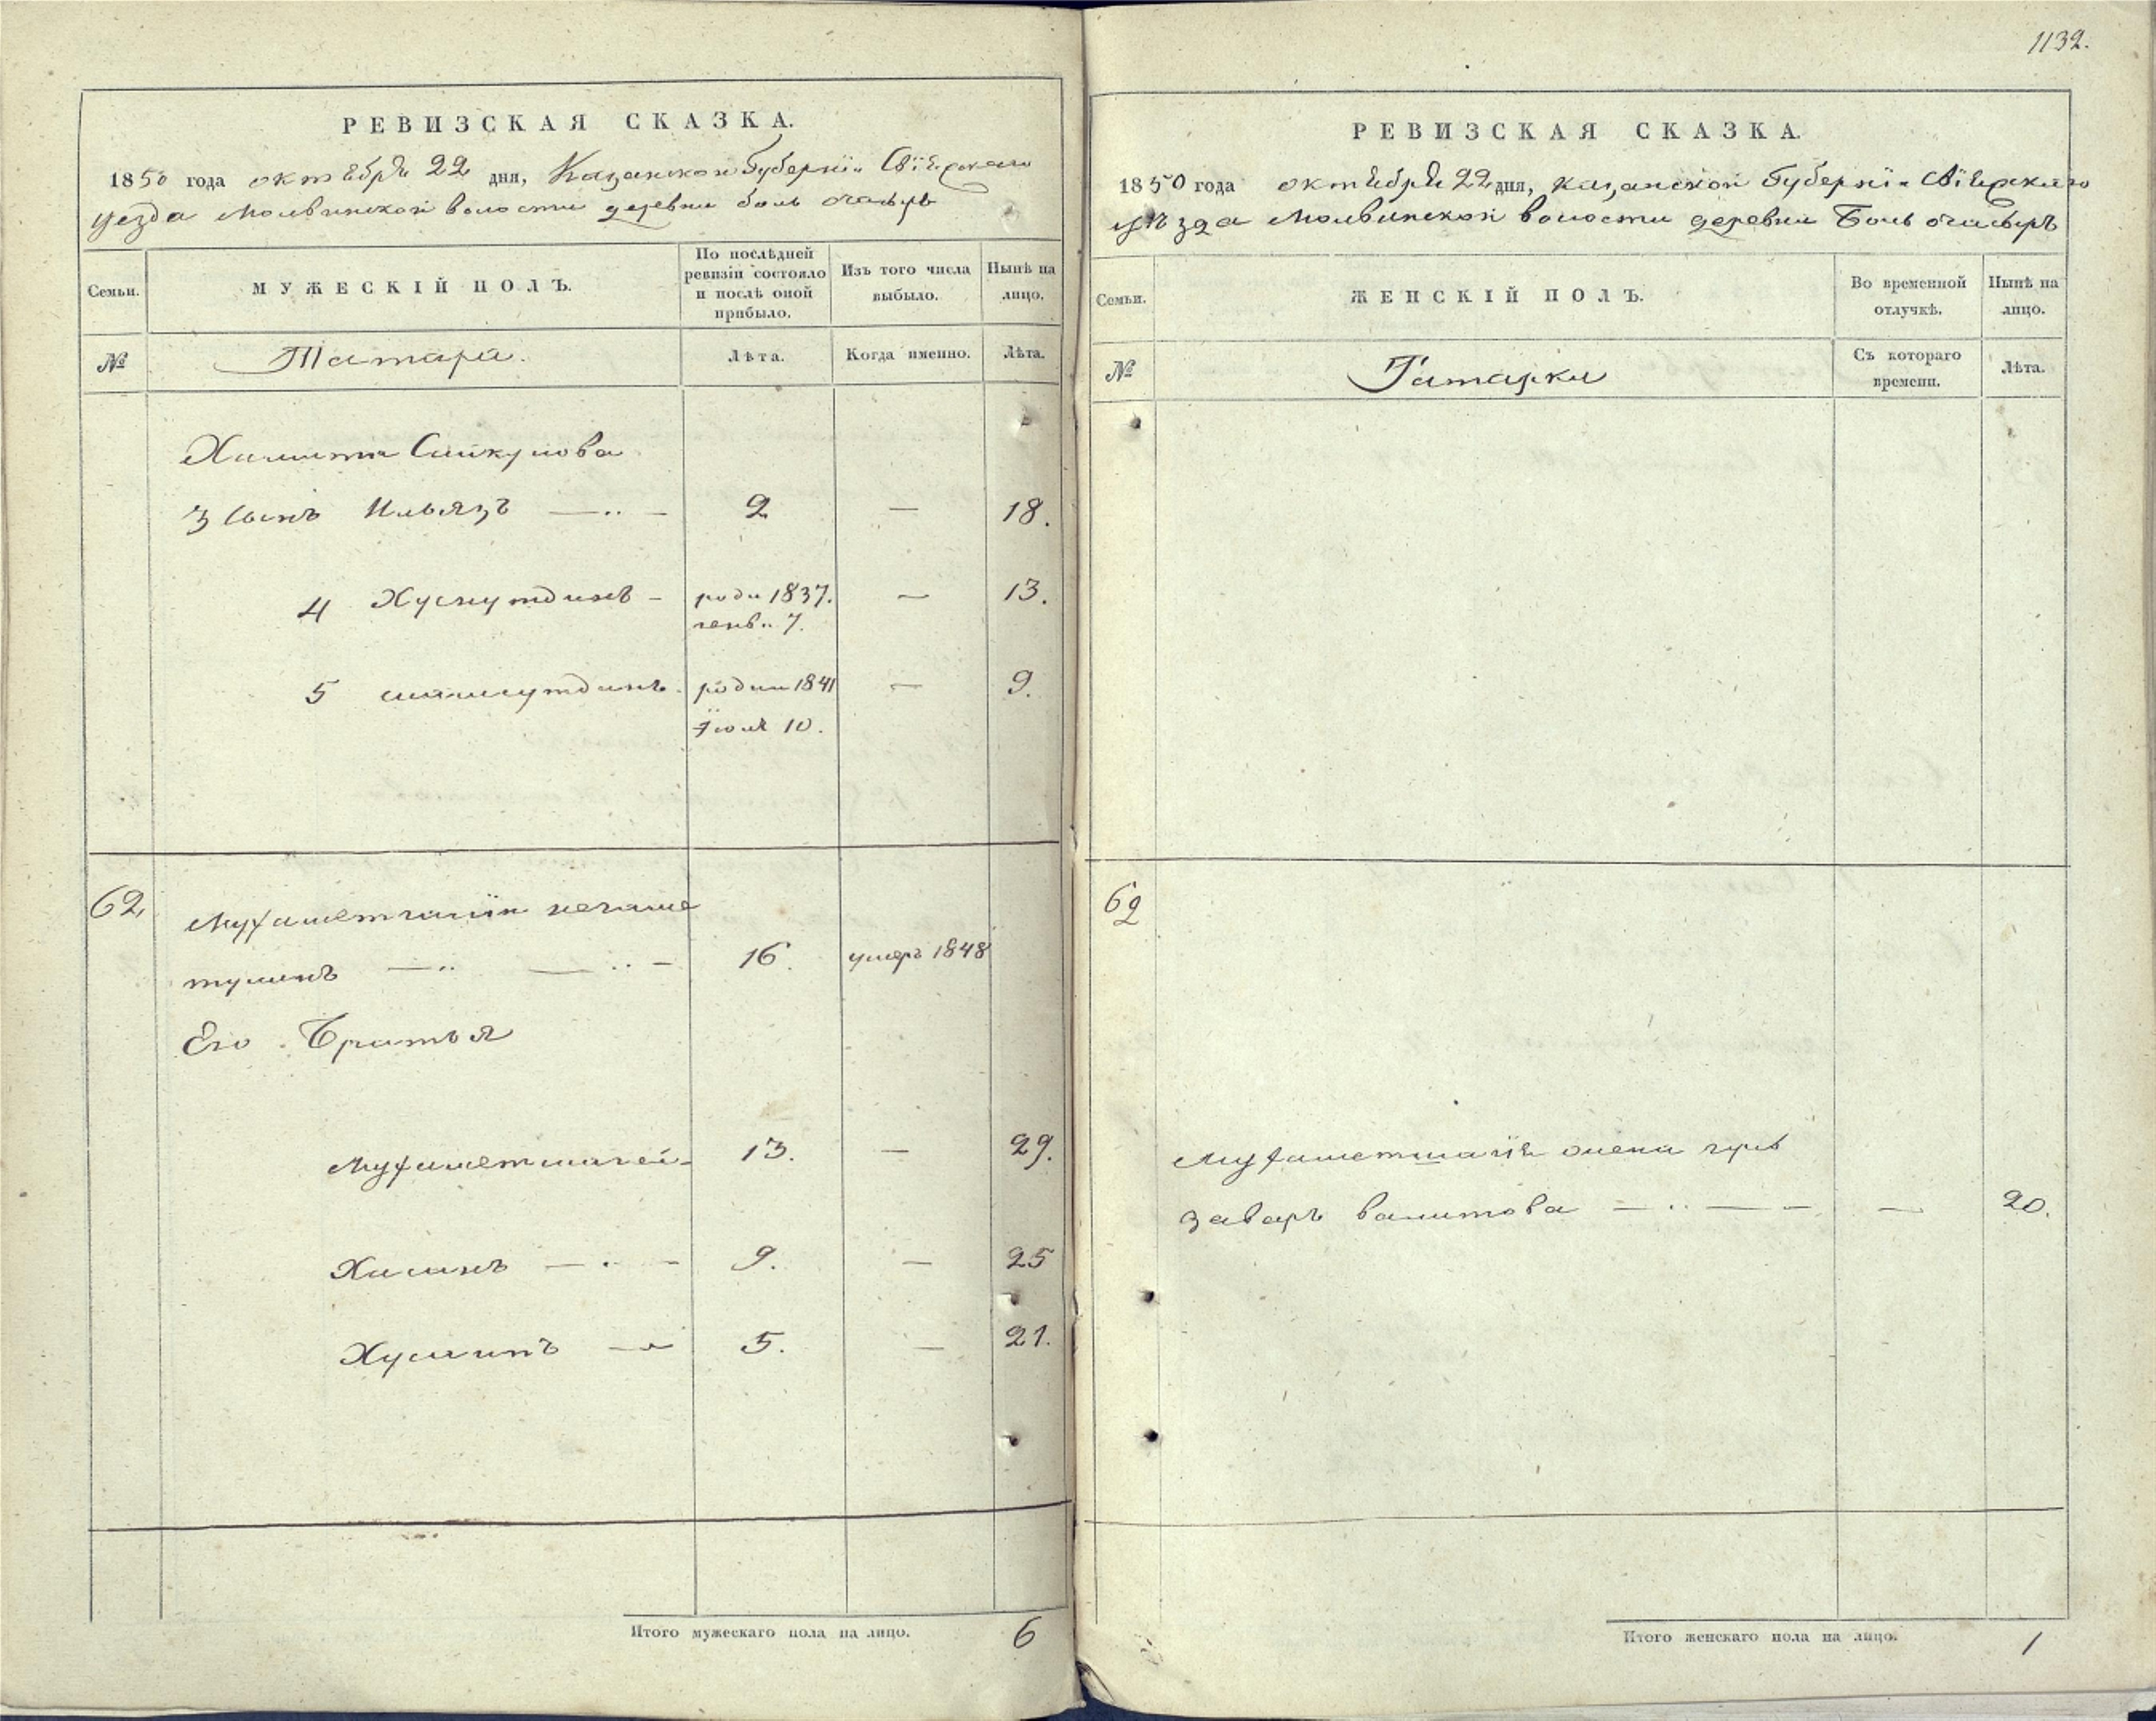 1132.
РЕВИЗСКАЯ СКАЗКА.
1850 года октября 22 дня, Казанской Губернiи Свiяжскаго
уезда Молвинской волости деревни боль очасырь
Семьи.
МУЖЕСКIЙ ПОЛЪ.
По послѣдней
ревизiи состояло
и послѣ оной
прибыло.
Изъ того числа
выбыло.
Нынѣ на
лицо.
№
Татара.
Лѣта.
Когда именно.
Лѣта.
Хамита Сайкулова
3 Сынъ Ильязъ — 2 — 18.
4 Хуснутдинъ - роди 1837. — 13.
генв. 7.
5 шамсутдинъ. родил 1841 — 9.
Iюля 10.
62.
Мухаметгалiй
тулинъ — 16. умеръ 1848
Его Братья
Мухаметшагей - 13. — 29.
Хасанъ — 9. — 25
Хусаинъ — 5. — 21.
Итого мужескаго пола на лицо. 6
РЕВИЗСКАЯ СКАЗКА.
1850 года октября 22 дня, казанской Губернiи Свiяжскаго
уѣзда Молвинской волости деревни Боль очасырь
Семьи.
ЖЕНСКIЙ ПОЛЪ.
Во временной
отлучкѣ.
Нынѣ на
лицо.
№
Татарки
Съ котораго
времени.
Лѣта.
62
Мухаметшагiя жена
валитова — — 20.
Итого женскаго пола на лицо. 1